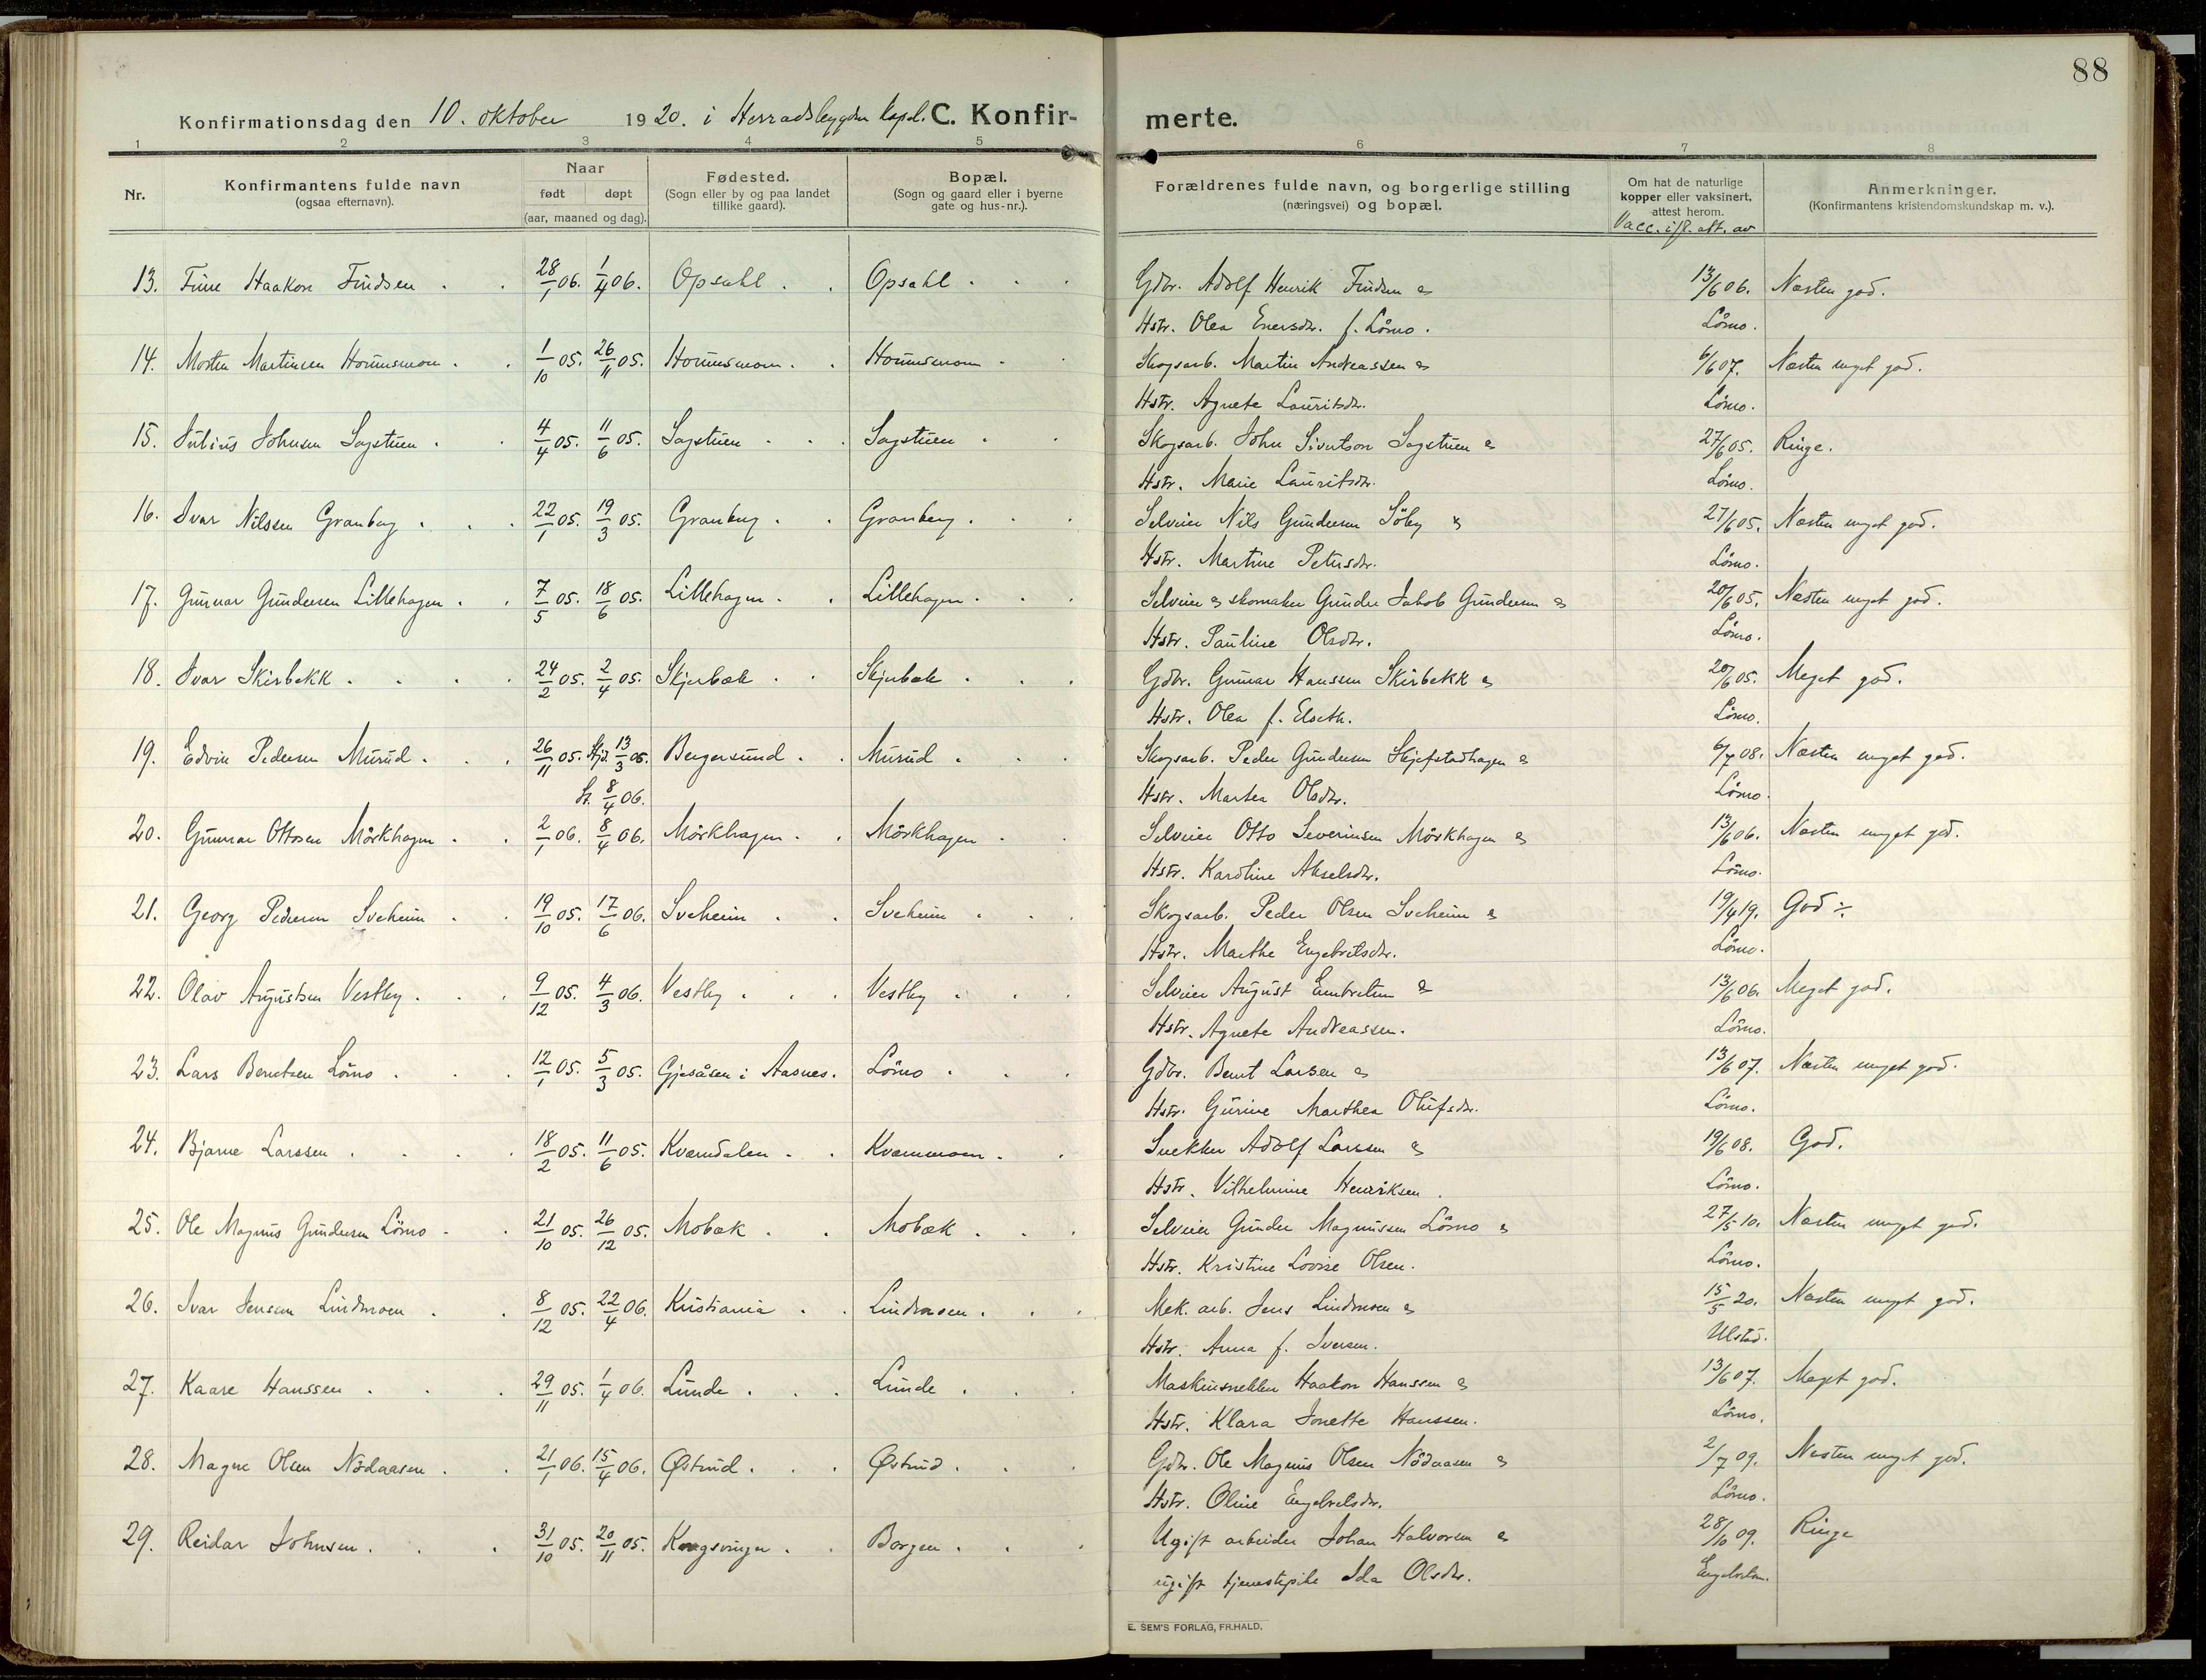 88
Konfirmationsdag den 10. oktober 1920. i Herradsbygden Kapel. C. Konfir- merte.
1 2 3 4 5 6 7 8
Nr.
Konfirmantens fulde navn
(ogsaa efternavn).
Naar
født døpt
(aar, maaned og dag).
Fødested.
(Sogn eller by og paa landet
tillike gaard).
Bopæl.
(Sogn og gaard eller i byerne
gate og hus-nr.).
Forældrenes fulde navn, og borgerlige stilling
(næringsvei) og bopæl.
Om hat de naturlige
kopper eller vaksinert,
attest herom.
Vacc. ifl. att. av
Anmerkninger.
(Konfirmantens kristendomskundskap m. v.).
13. Finn Haakon Findsen 28/1 06. 1/4 06. Opsahl Opsahl Gdbr. Adolf Henrik Findsen & 13/6 06. Næsten god.
Hstr. Olea Enersdr. f. Lömo. Lömo.
14. Morten Martinsen Hornmoen 1/10 05. 26/11 05. Skogsarb. Martin Andreassen & 6/6 07. Næsten meget god.
Hstr. Agnete Lauritsdr. Lömo.
15. Julius Johnsen Sagstuen 4/4 05. 11/6 05. Sagstuen Sagstuen Skogsarb. John Sivertson Sagstuen & 27/6 05. Ringe.
Hstr. Marie Lauritsdr. Lömo.
16. Ivar Nilssen Granberg 22/1 05. 19/3 05. Granberg Granberg Selveier Nils Gundersen Söby & 27/6 05. Næsten meget god.
Hstr. Martine Petersdr. Lömo.
17. Gunnar Gundersen Lillehagen 7/5 05. 18/6 05. Lillehagen Lillehagen Selveier & skomaker Gunder Jakob Gundersen & 20/6 05. Næsten meget god.
Hstr. Pauline Olsdr. Lömo.
18. Ivar Skirbekk 24/2 05. 2/4 05. Skjerbæk Skjerbæk Gdbr. Gunnar Hanssen Skirbekk & 20/6 05. Meget god.
Hstr. Olea f. Elseth. Lömo.
19. Edvin Pedersen Murud 26/11 05. Hjd. 13/3 06. Bergersund Murud Skogsarb. Peder Gundersen Skjefstadhagen & 6/7 08. Næsten meget god.
8/4 06. Hstr. Martea Olsdr. Lömo.
20. Gunnar Ottosen Mörkhagen 2/1 06. 8/4 06. Mörkhagen Mörkhagen Selveier Otto Severinsen Mörkhagen & 13/6 06. Næsten meget god.
Hstr. Karoline Akselsdr. Lömo.
21. Georg Pedersen Sveheim 19/10 05. 17/6 06. Sveheim Sveheim Skogsarb. Peder Olsen Sveheim & 19/4 19. God ÷.
Hstr. Marthe Engebretsdr. Lömo.
22. Olav Augustsen Vestby 9/12 05. 4/3 06. Vestby Vestby Selveier August Embretsen & 13/6 06. Meget god.
Hstr. Agnete Andreassen. Lömo.
23. Lars Berntsen Lömo 12/1 05. 5/3 05. Gjesåsen i Aasnes. Lömo Gdbr. Bernt Larsen & 13/6 07. Næsten meget god.
Hstr. Gurine Marthea Olufsdr. Lömo.
24. Bjarne Larssen 18/2 05. 11/6 05. Kværndalen Kværnmoen Snekker Adolf Larssen & 19/6 08. God.
Hstr. Vilhelmine Henriksen. Lömo.
25. Ole Magnus Gundersen Lömo 21/10 05. 26/12 05. Mobæk Mobæk Selveier Gunder Magnussen Lömo & 27/5 10. Næsten meget god.
Hstr. Kristine Lovise Olsen. Lömo.
26. Ivar Jensen Lindmoen 8/12 05. 22/4 06. Kristiania Lindmoen Mek. arb. Jens Lindmoen & 15/5 20. Næsten meget god.
Hstr. Anna f. Iversen. Ulstad.
27. Kaare Hanssen 29/11 05. 1/4 06. Lunde Lunde Maskinsnekker Haakon Hanssen & 13/6 07. Meget god.
Hstr. Klara Jonette Hanssen. Lömo.
28. Magne Olsen Nödaasen 21/1 06. 15/4 06. Østrud Østrud Gdbr. Ole Magnus Olsen Nödaasen & 2/7 09. Næsten meget god.
Hstr. Oline Engebretsdr. Lömo.
29. Reidar Johnsen 31/10 05. 20/11 05. Kongsvinger Borgen Ugift arbeider Johan Halvorsen & 28/10 09. Ringe
ugift tjenestepike Ida Olsdr. Engebretsen.
E. SEM'S FORLAG, FR.HALD.